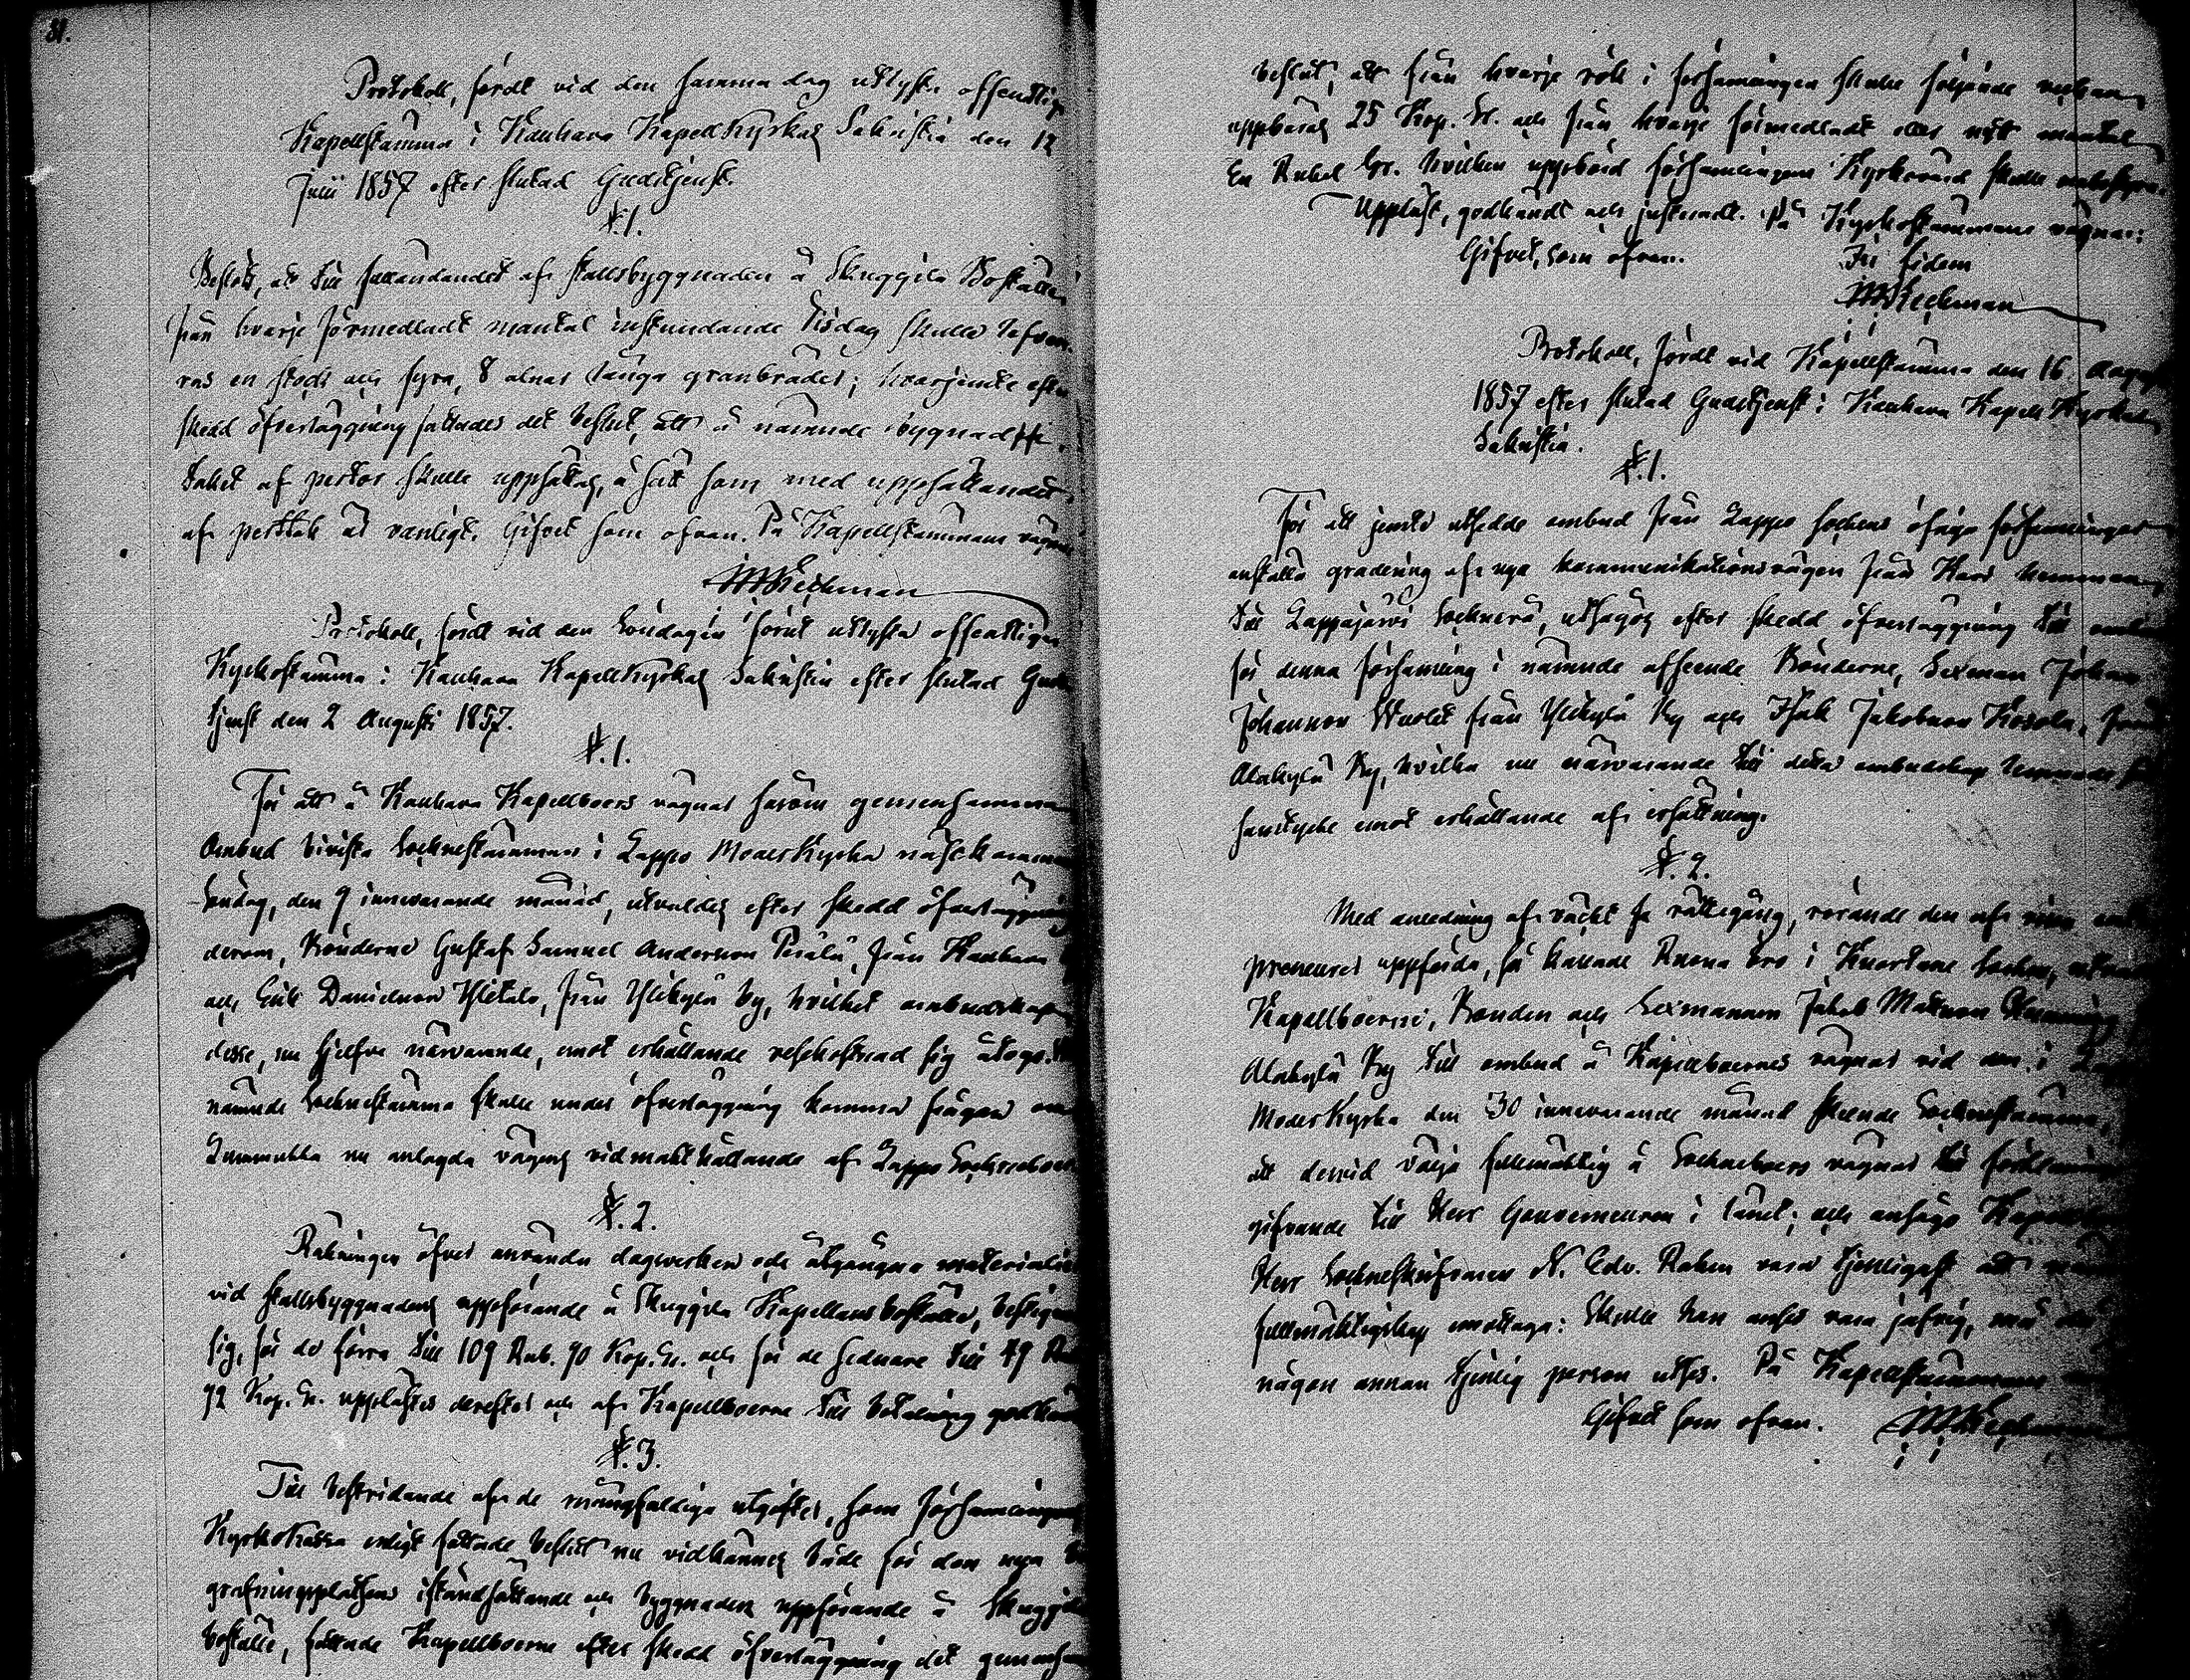 81.
Protokoll, fördt vid den samma dag utlysta offentliga
Kapellstämma i Kauhava Kapell Kyrkas Sakristia den 12
Julii 1857 efter slutad Gudstjenst.
§.1.
Beslöts, att till fulländandet af stallsbyggnaden å Skuggila Boställe
från hvarje förmedladt mantal instundande Tisdag skulle lefve-
ras en stock och fyra, 8 alnar långa granbräder; hvarjemte efter
skedd öfverläggning fattades det beslut, att å nämnde byggnad
taket af pertor skulle uppsättas, å sätt som med uppsättandet
af perttak är vanligt. Gifvet som ofvan. På Kapellstämmans vägnar
Protokoll, fördt vid den Söndagen förut utlysta offentliga
Kyrkostämma i Kauhava Kapell Kyrkas Sakristia efter slutad Guds
tjenst den 2 Augusti 1857.
§.1.
För att å Kauhava Kapellboers vägnar såsom gemensamma
Ombud bivista Socknestämman i Lappo Moder Kyrka nästkommande
Söndag, den 9 innevarande månad, utvaldes efter skedd öfverläggning
derom, Bönderne Gustaf Samuel Andersson Perälä, från Kauhava
och Erik Danielsson Ylitalo, från Ylikylä by, hvilket ombudskap
desse, nu sjelfve närvarande, emot erhållande resekostnad sig åtogo.
nämnde Sockne stämma skulle under öfverläggning komma frågan om
nu anlagda vägens vidmakthållande af Lappo Sockneboer
§.2.
Räkningen öfver använda dagsverken och åtgångna materialier
vid stallsbyggnadens uppförande å Skuggila Kapellans boställe, bestigande
sig, för de förra till 109 Rub. 90 Kop. Sr. och för de sednare till 49 Rub
92 Kop. Sr. upplästes derefter och af Kapellboerne till betalning godkändes
§.3.
Till bestridande af de mångfaldiga utgifter, som församlingens
Kyrkokassa enligt fattade beslut nu vidkännes både för den nya be
grafningsplatsens iståndsättande och byggnadens uppförande å Skuggila
boställe, fattade Kapellboerne efter skedd öfverläggning det gemensamma
beslut, att från hvarje rök i församlingen skulle följande veckan
uppbäras 25 Kop. Sr. och från hvarje förmedladt eller nytt mantal
En Rubel Sr. hvilken uppbörd församlingens Kyrkovärd skulle ombesörja.
Uppläst, godkändt och justeradt. På Kyrkostämmans vägnar:
Gifvet, som ofvan. In fidem
Protokoll, fördt vid Kapellstämma den 16 Augusti
1857 efter slutad Gudstjenst i Kauhava Kapell Kyrkas
Sakristia.
§.1.
För att jemte utsedde ombud från Lappo Sockens öfriga församlingar
anställa gradering af nya kommunikationsvägen från hemman
till Lappajärvi Sockenrå, utsågos efter skedd öfverläggning till ombud
för denna församling i nämnde afseende Bönderne, Sexman Johan
Johansson från Ylikylä By och Isak Jakobsson Kosola, från
Alakylä By, hvilka nu närvarande till detta ombudskap lemnade sitt
samtycke emot erhållande af ersättning.
§.2.
Med anledning af väckt fråga rättegång, rörande den af
preneurer uppförda, så kallade Ruona bro i Kuortane Socken, utsågo
Kapellboerne, Bonden och Sexmannen Jakob Mattsson
Alakylä By till ombud å Kapellboernes vägnar vid den i Lappo
Moder Kyrka den 30 innevarande månad skeende Sockenstämma,
att dervid välja fullmäktig å Sockneboers vägnar till
gifvande till Herr Gouverneuren i länet; och ansågo Kapellboerne
Herr Sockneskrifvaren N. Edv. vara tjenligast att
fullmäktigskap emottaga: Skulle han anses vara jäfvig, må
någon annan tjenlig person utses. På Kapellstämmans vägnar
Gifvet som ofvan.